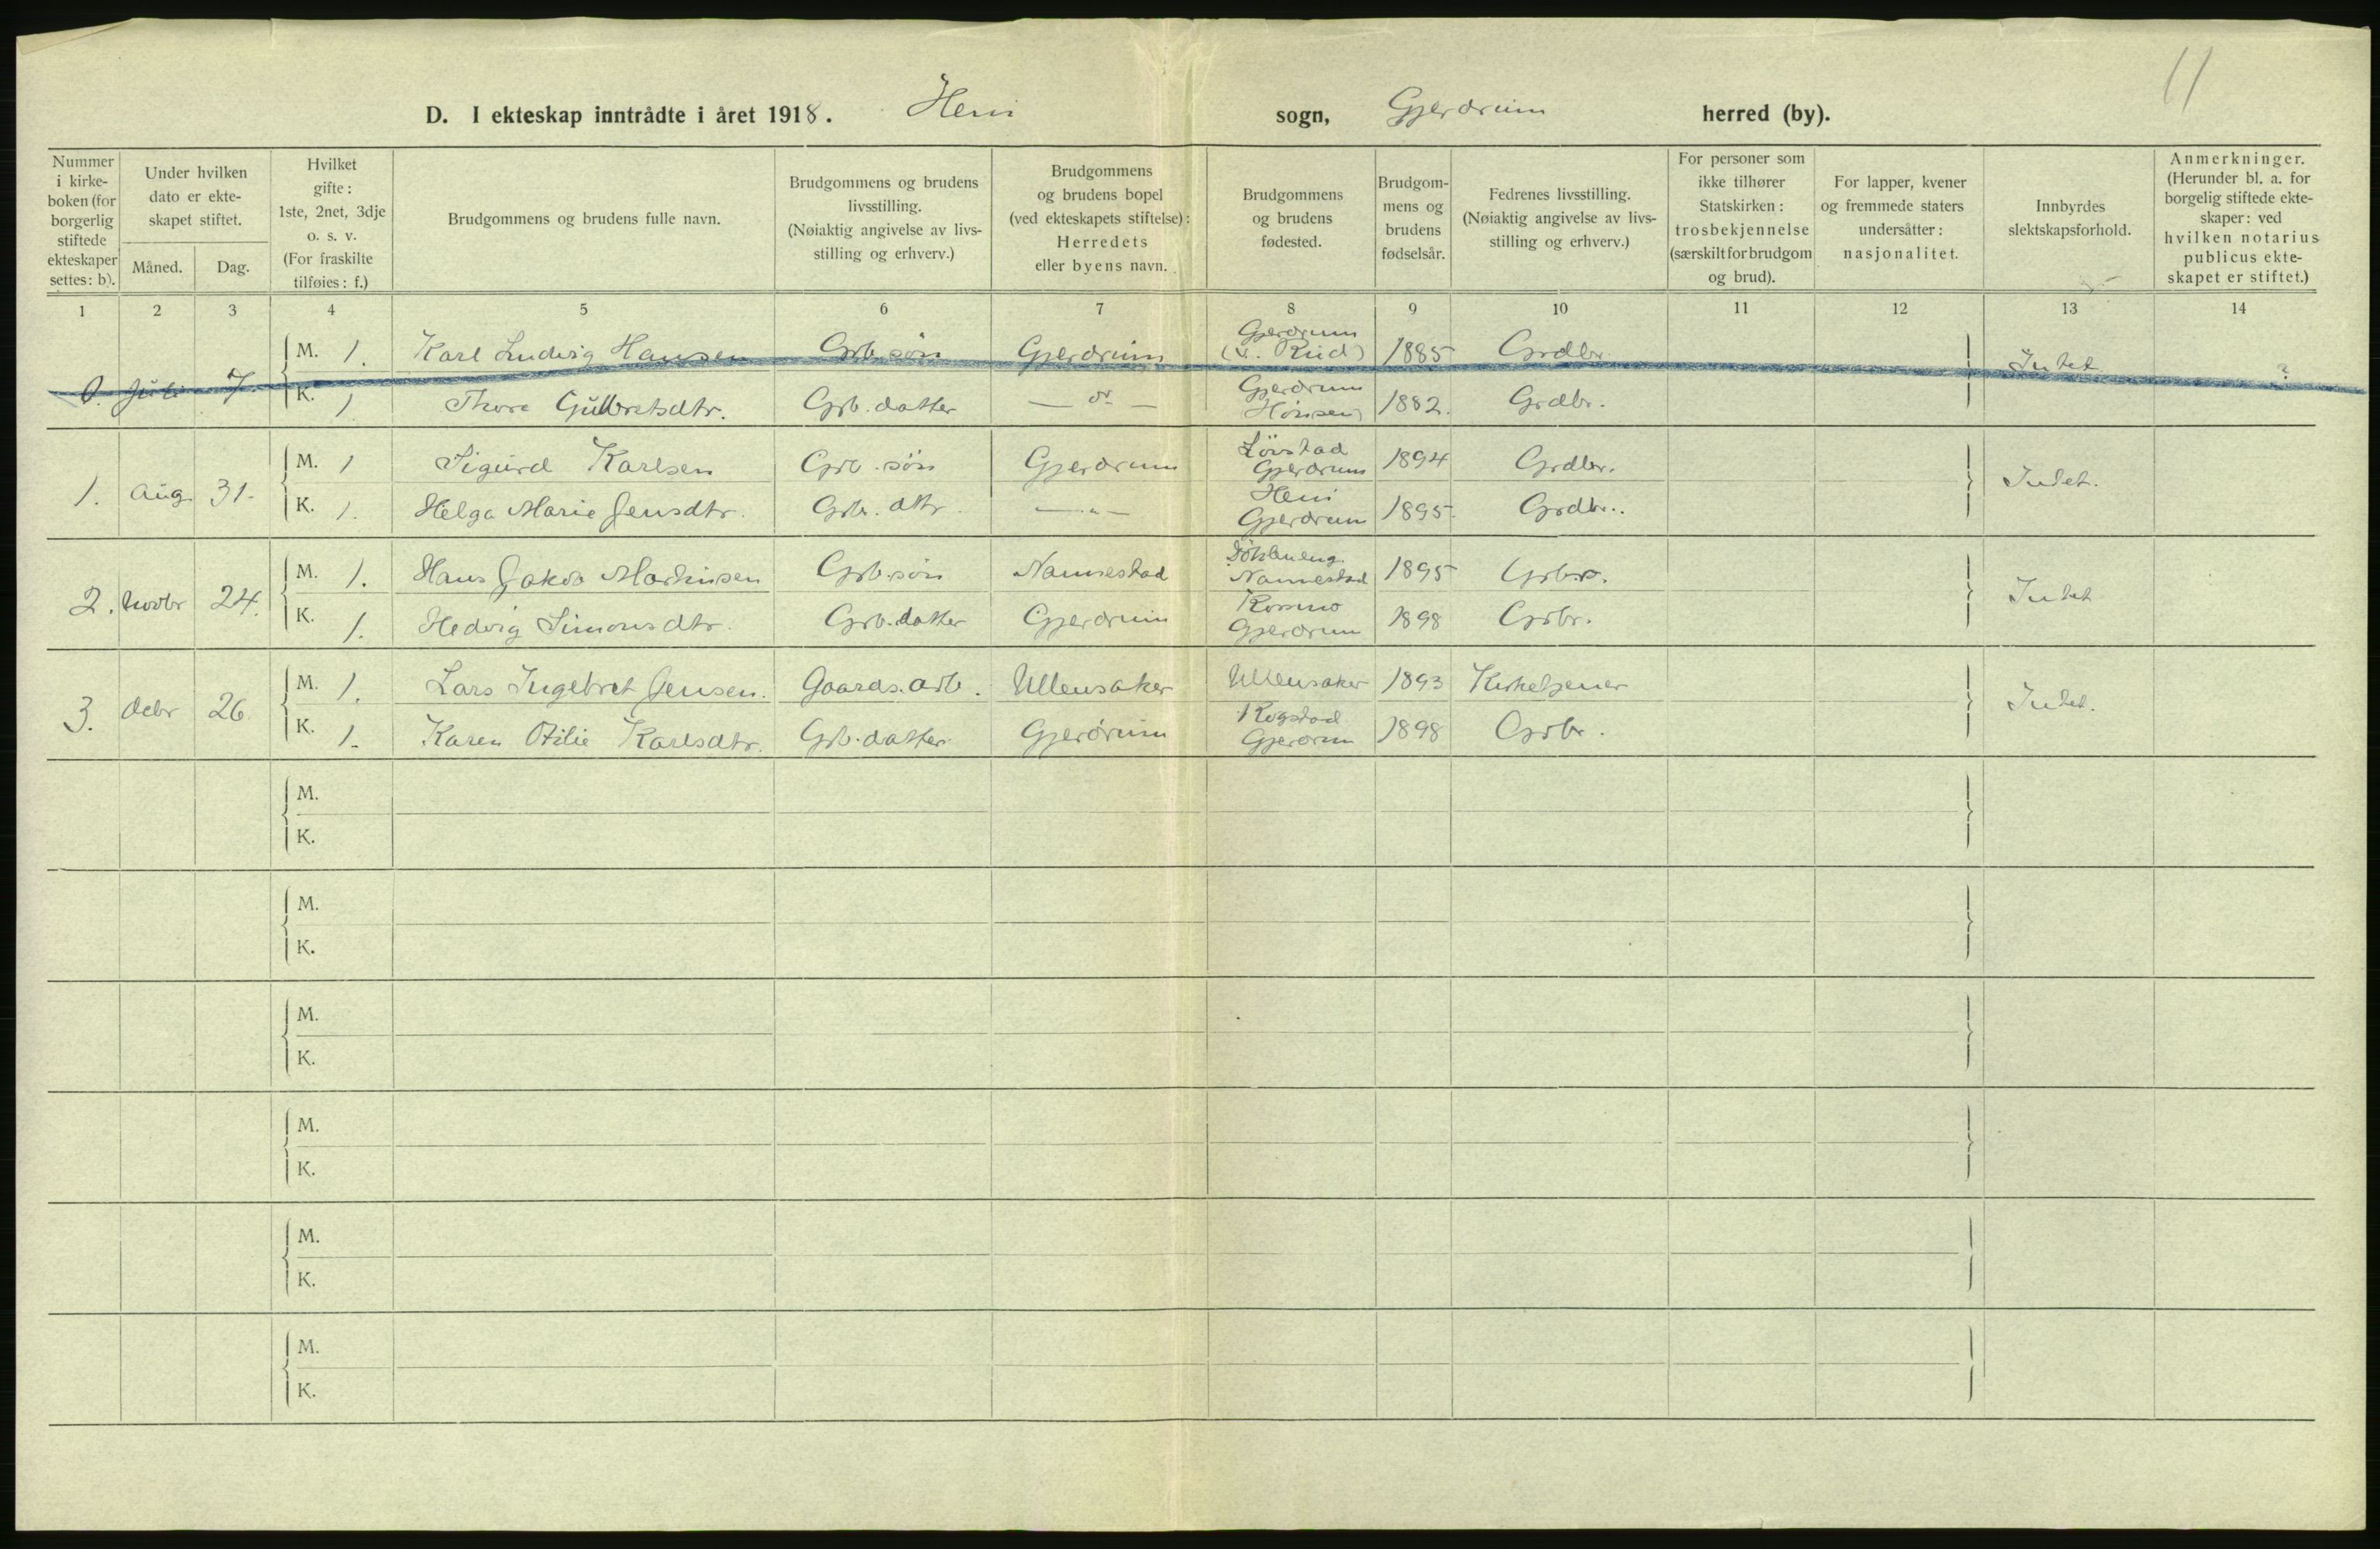 11
D. I ekteskap inntrådte i året 1918. Heni sogn, Gjerdrum herred (by).
Nummer i kirke-boken (for borgerlig stiftede ekteskaper settes: b).
Under hvilken dato er ekte-skapet stiftet.
Måned.
Dag.
Hvilket gifte: 1ste, 2net, 3dje o. s. v. (For fraskilte tilføies: f.)
Brudgommens og brudens fulle navn.
Brudgommens og brudens livsstilling. (Nøiaktig angivelse av livs-stilling og erhverv.)
Brudgommens og brudens bopel (ved ekteskapets stiftelse): Herredets eller byens navn.
Brudgommens og brudens fødested.
Brudgom-mens og brudens fødselsår.
Fedrenes livsstilling. (Nøiaktig angivelse av livs-stilling og erhverv.)
For personer som ikke tilhører Statskirken: trosbekjennelse (særskilt for brudgom og brud).
For lapper, kvener og fremmede staters undersåtter: nasjonalitet.
Innbyrdes slektskapsforhold.
Anmerkninger. (Herunder bl. a. for borgelig stiftede ekte-skaper: ved hvilken notarius publicus ekte-skapet er stiftet.)
1 2 3 4 5 6 7 8 9 10 11 12 13 14
M. 1. Karl Ludvig Hansen Grb. søn Gjerdrum Gjerdrum (v. Rud) 1885 Grdbr.
0. Juli 7. Intet ?
K. 1 Thora Gulbretsdtr. Grb. datter — do — Gjerdrum Hønsen) 1882. Grdbr.
M. 1 Sigurd Karlsen Grb. søn Gjerdrum Løvstad Gjerdrum 1894 Grdbr.
1. Aug. 31. Intet.
K. 1. Helga Marie Jensdtr. Grb. dtr. — " — Heni Gjerdrum 1895. Grdbr.
M. 1. Hans Jakob Martinsen Grb. søn Nannestad Nannestad 1895 Grbr.
2. Novbr 24. Intet
K. 1. Hedvig Simonsdtr. Grb. datter Gjerdrum Gjerdrum 1898 Grbr.
M. 1. Lars Ingebret Jensen. Gaards. arb. Ullensaker Ullensaker 1893 Kirketjener
3. Decbr 26 Intet.
K. 1. Karen Otilie Karlsdtr. Grb. datter Gjerdrum Rogstad Gjerdrum 1898 Grbr.
M.
K.
M.
K.
M.
K.
M.
K.
M.
K.
M.
K.